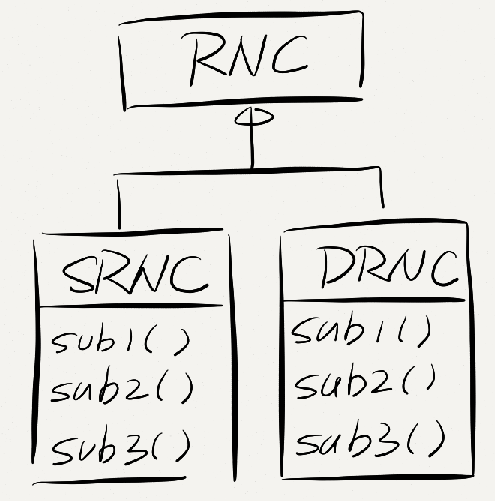 RNC
SRNC
sub1()
sub2()
sub3()
DRNC
sub1()
sub2()
sub3()